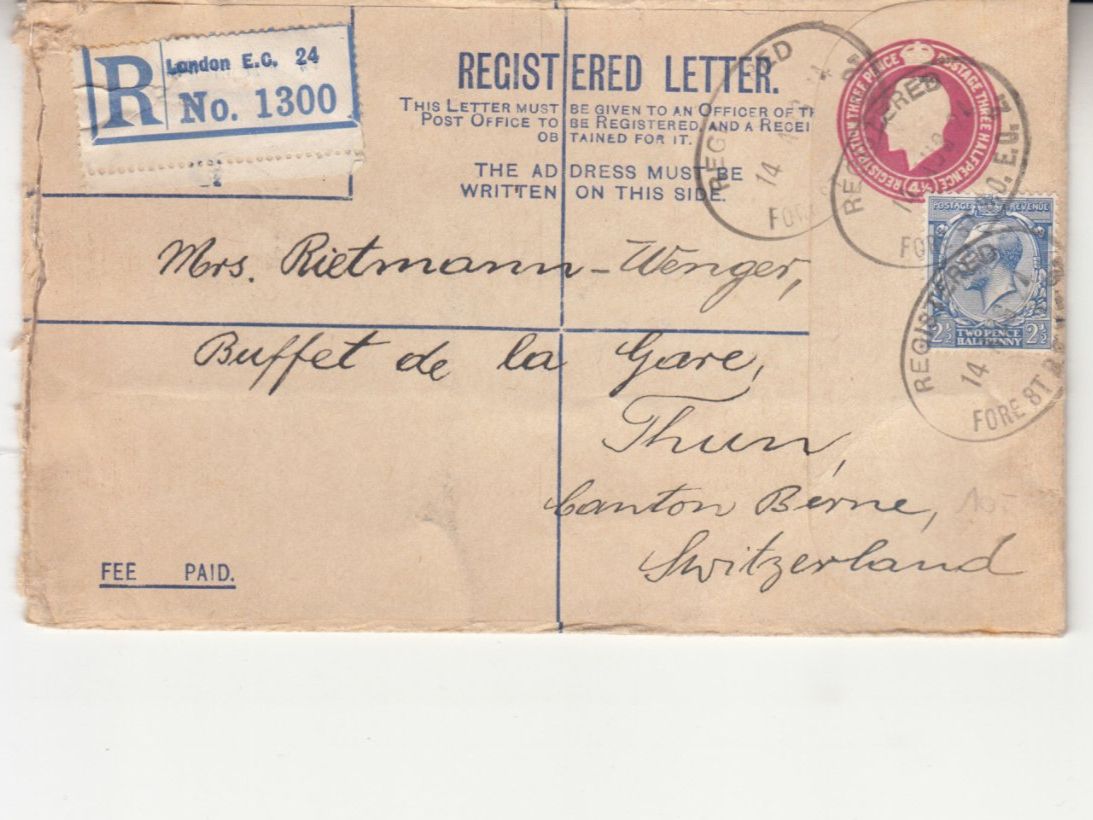 R London E.C. 24
No. 1300
REGISTERED LETTER.
THIS LETTER MUST BE GIVEN TO AN OFFICER OF TH
POST OFFICE TO BE REGISTERED, AND A RECEI
OBTAINED FOR IT.
THE ADDRESS MUST BE
WRITTEN ON THIS SIDE.
REGISTRATION THREE PENCE
POSTAGE THREE HALFPENCE
4½
POSTAGE REVENUE
2½ TWO PENCE HALFPENNY 2½
REGISTERED
14
FORE
REGISTERED
FORE
REGISTERED
14
FORE ST
Mrs. Rietmann-Wenger,
Buffet de la Gare,
Thun,
Canton Berne,
Switzerland
FEE PAID.